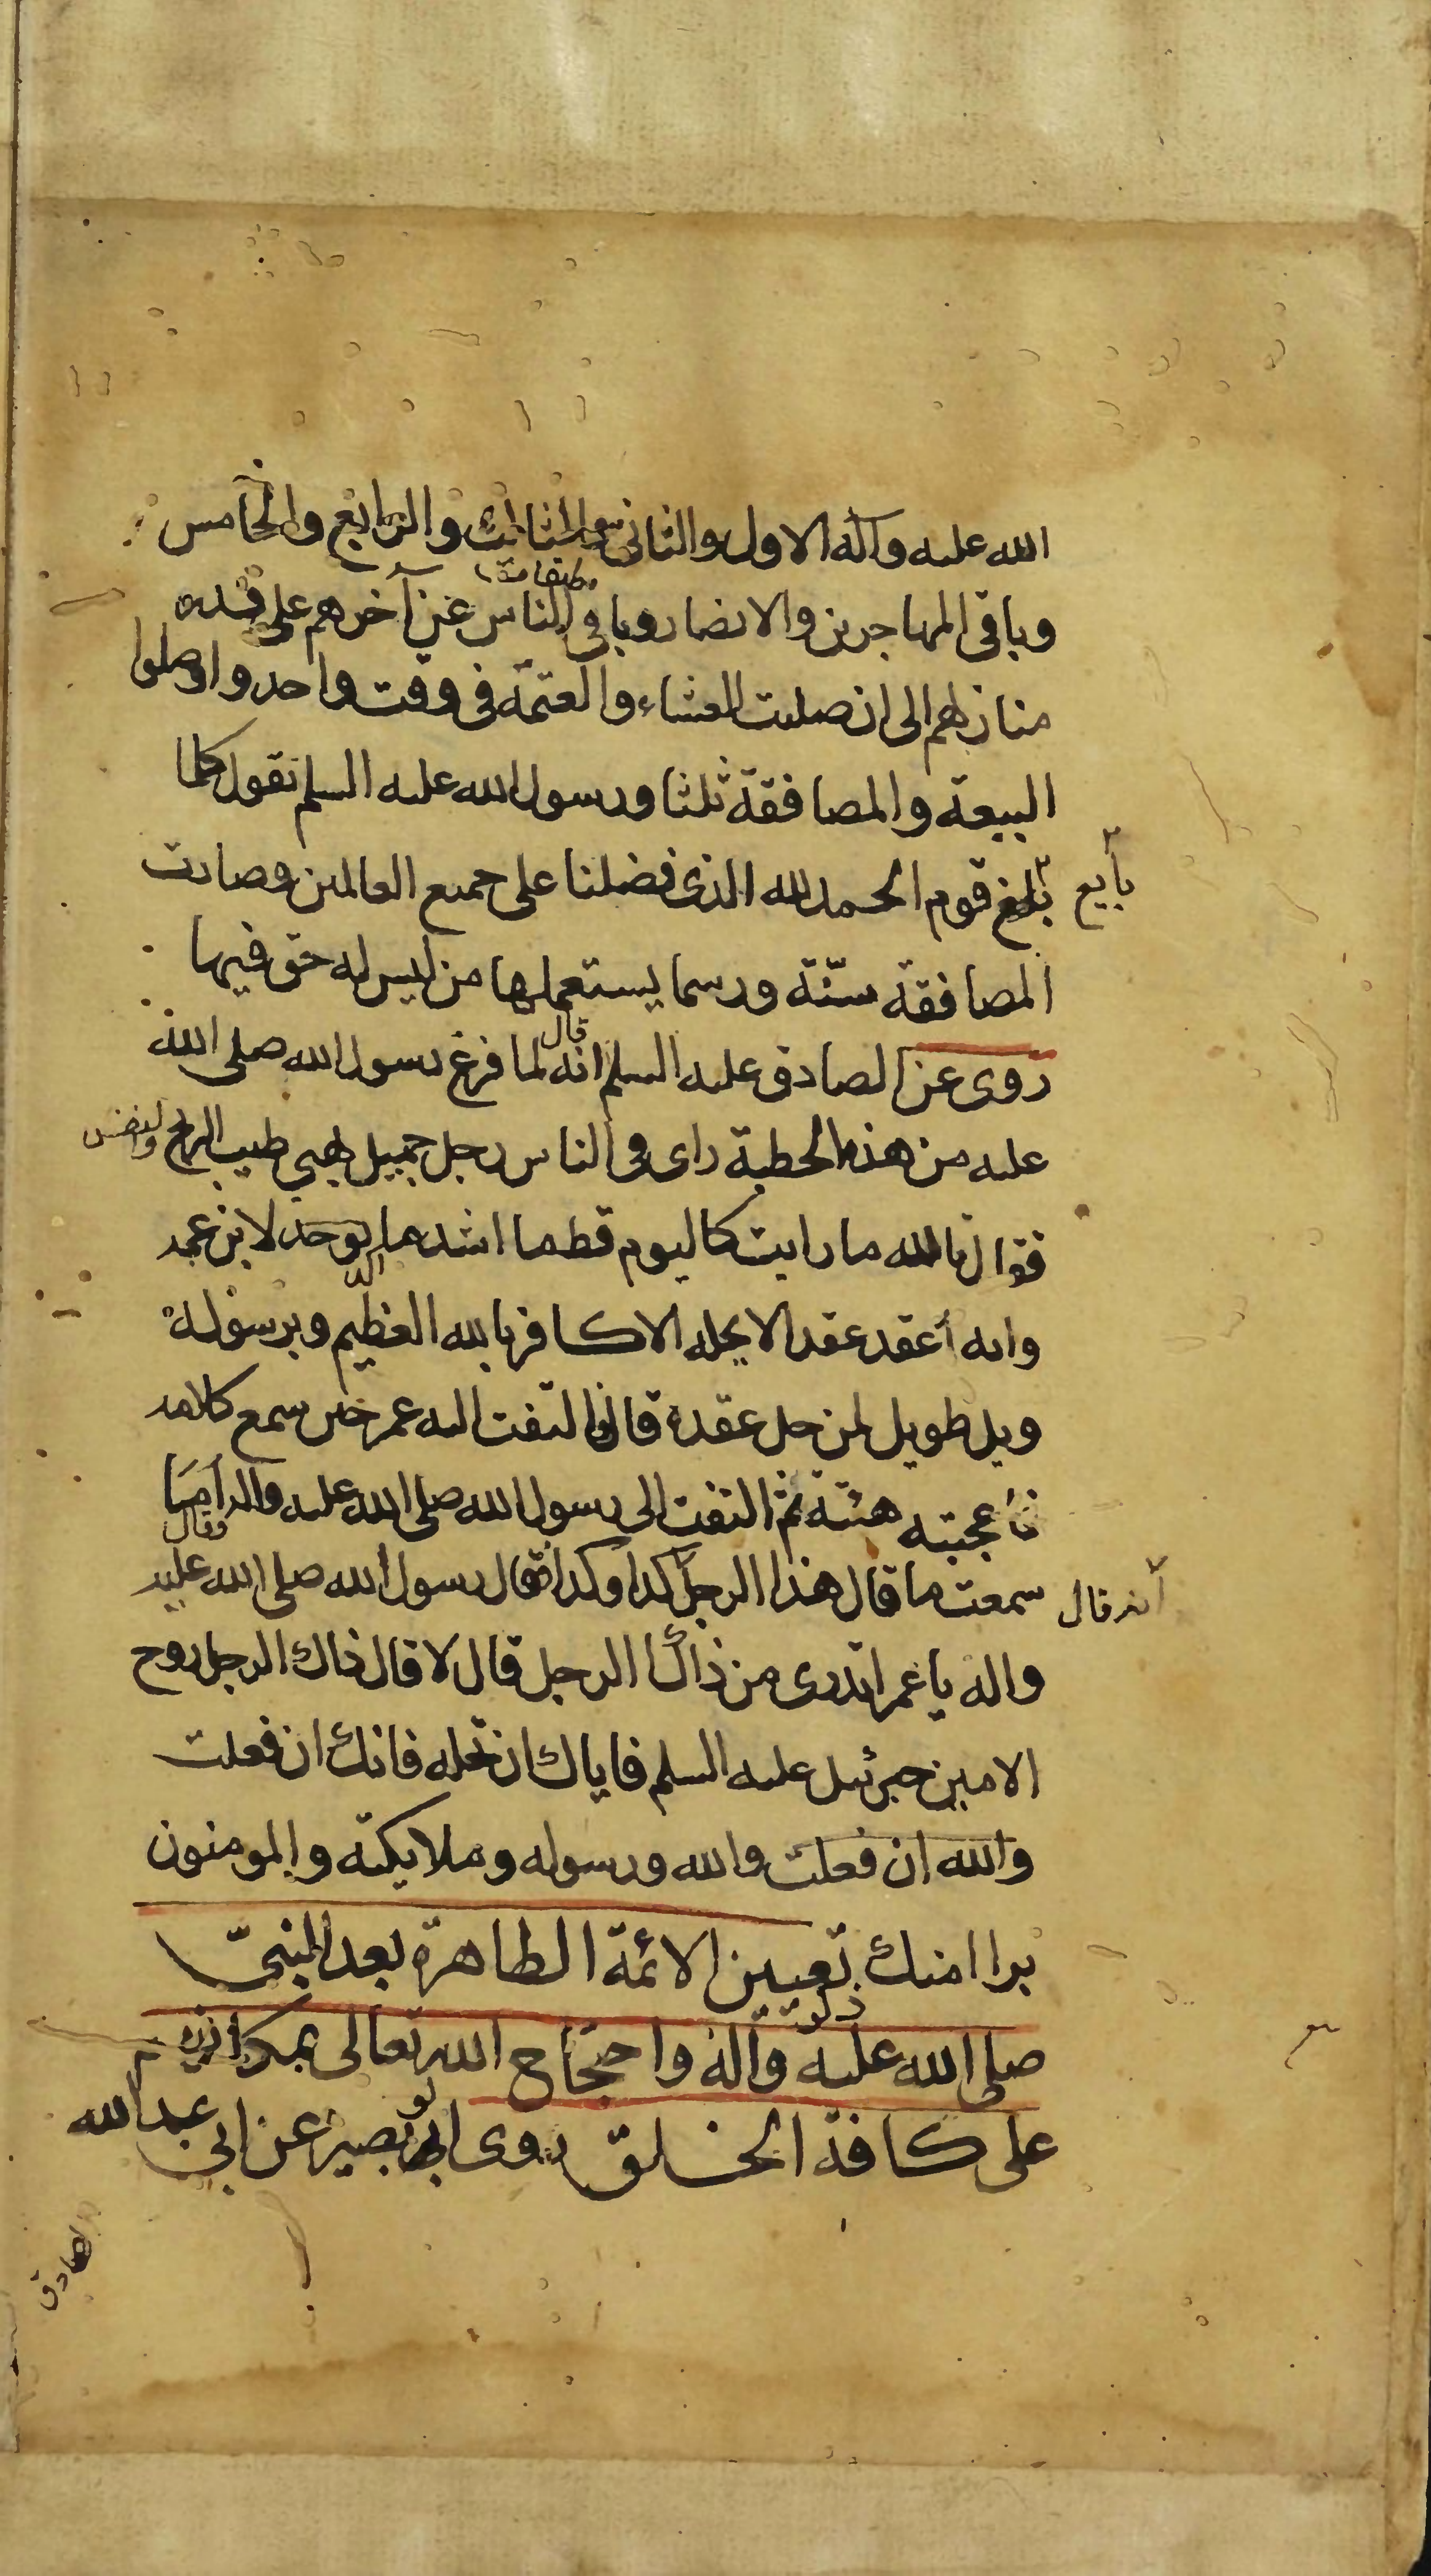 الله عليه وآله الاول والثاني والثالث والرابع والخامس
وباقي المهاجرين والانصار وباقي الناس عن آخرهم على قدر
منازلهم الى ان صليت العشاء والعتمة في وقت واحد واوصلوا
البيعة والمصافقة ثلثا ورسول الله عليه السلم يقول كلما
بايع
قوم الحمد لله الذى فضلنا على جميع العالمين وصارت
المصافقة سنّة ورسما يستعملها من ليس له حق فيها
روى عن الصادق عليه السلم انه قال لما فرغ رسول الله صلى الله
عليه من هذه الخطبة راى فى الناس رجل جميل بهي طيب الريح
فقال تالله ما رايت كاليوم قط ما اشد ما لابن عمه
وانه أعقد عقد الا يحله الا كافر بالله العظيم وبرسوله
ويل طويل لمن حل عقده قال التفت اليه عمر حين سمع كلامه
فاعجبته هيئته ثم التفت الى رسول الله صلى الله عليه واله وقال اما
سمعت ما قال هذا الرجل كذا وكذا فقال رسول الله صلى الله عليه
أنه قال
واله يا عمر اتدرى من ذاك الرجل قال لا قال ذاك الرجل روح
الامين جبرئيل عليه السلم فاياك ان تحله فانك ان فعلت
والله ان فعلت والله ورسوله وملايكته والمومنون
براا منك تعيين الائمة الطاهرة بعد النبيّ
صلى الله عليه وآله واحتجاج الله تعالى بمكانهم
على كافة الخلق روى ابو بصير عن ابي عبد الله
الصادق